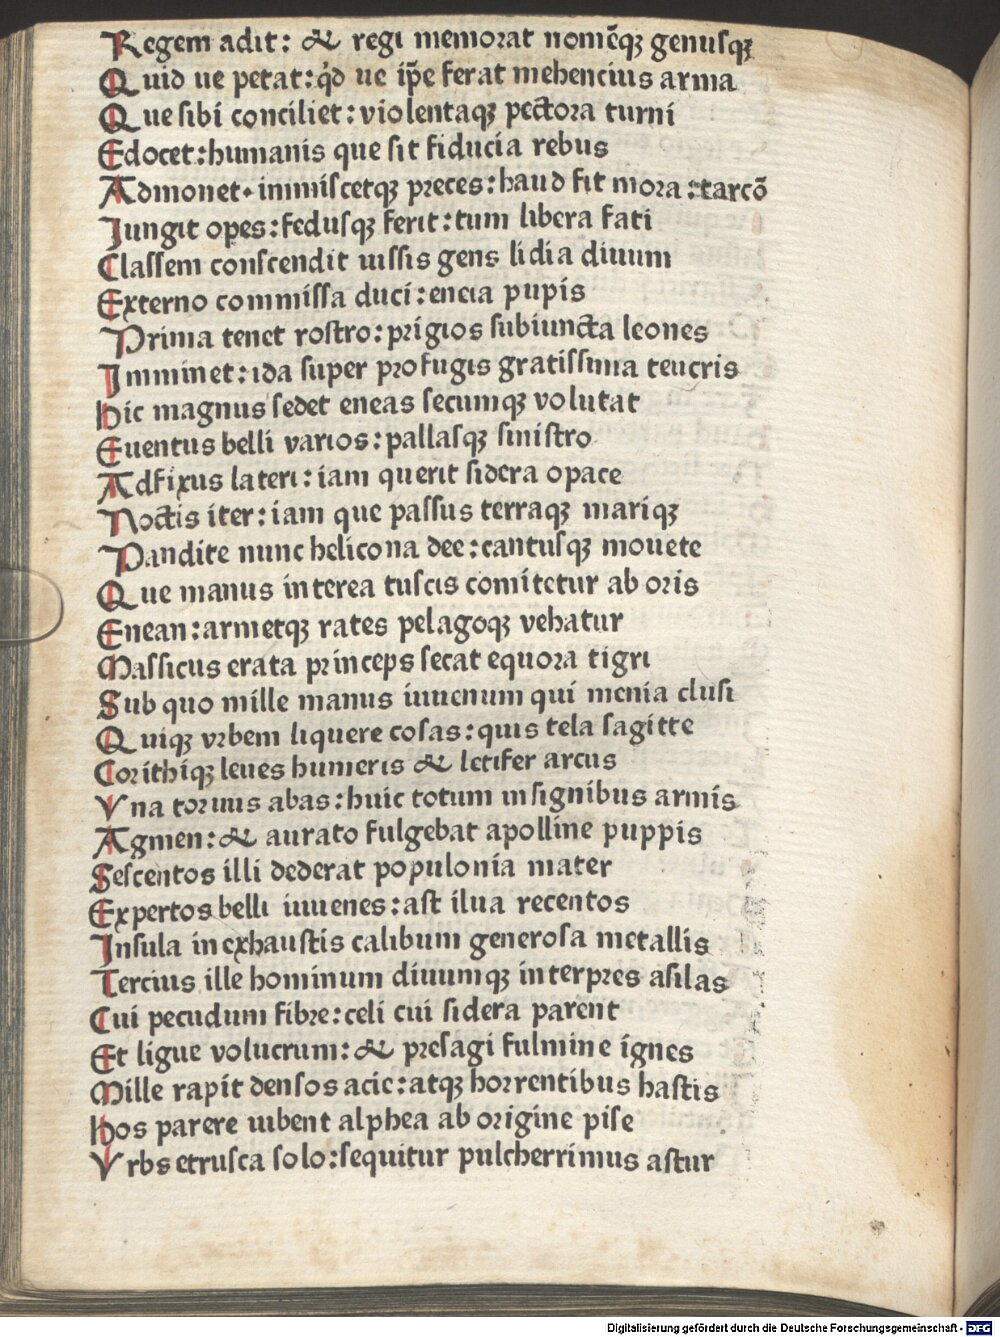 Regem adit: & regi memorat nomēqꝫ genusqꝫ
Quid ue petat: qd ue ip̄e ferat mehencius arma
Que sibi conciliet: violentaqꝫ pectora turni
Edocet: humanis que sit fiducia rebus
Admonet. inmiscetqꝫ preces: haud fit mora: tarcō
Jungit opes: fedusqꝫ ferit: tum libera fati
Classem conscendit iussis gens lidia diuum
Externo commissa duci: encia pupis
Prima tenet rostro: prigios subiuncta leones
Imminet: ida super profugis gratissima teucris
Hic magnus sedet eneas secumqꝫ volutat
Euentus belli varios: pallasqꝫ sinistro
Adfixus lateri: iam querit sidera opace
Noctis iter: iam que passus terraqꝫ mariqꝫ
Pandite nunc helicona dee: cantusqꝫ mouete
Que manus interea tuscis comitetur ab oris
Enean: armetqꝫ rates pelagoqꝫ vehatur
Massicus erata princeps secat equora tigri
Sub quo mille manus iuuenum qui menia clusi
Quiqꝫ vrbem liquere cosas: quis tela sagitte
Corithiqꝫ leues humeris & letifer arcus
Vna toruus abas: huic totum insignibus armis
Agmen: & aurato fulgebat apolline puppis
Sescentos illi dederat populonia mater
Expertos belli iuuenes: ast ilua recentos
Insula inexhaustis calibum generosa metallis
Tercius ille hominum diuumqꝫ interpres asilas
Cui pecudum fibre: celi cui sidera parent
Et ligue volucrum: & presagi fulmine ignes
Mille rapit densos acie: atqꝫ horrentibus hastis
Hos parere iubent alphea ab origine pise
Vrbs etrusca solo: sequitur pulcherrimus astur
Digitalisierung gefördert durch die Deutsche Forschungsgemeinschaft - DFG